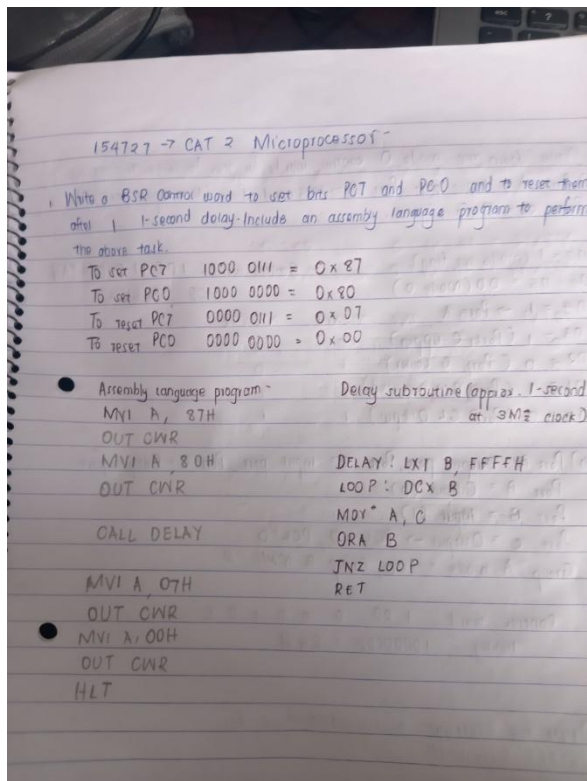 154727 → CAT 2 Microprocessor -
1 Write a BSR Control word to set bits PC7 and PC0 and to reset them
after 1 1-second delay. Include an assembly language program to perform
the above task.
To set PC7 1000 0111 = 0x87
To set PC0 1000 0000 = 0x80
To reset PC7 0000 0111 = 0x07
To reset PC0 0000 0000 = 0x00
Assembly language program -
MVI A, 87H
OUT CWR
MVI A, 80H
OUT CWR
CALL DELAY
MVI A, 07H
OUT CWR
MVI A, 00H
OUT CWR
HLT
Delay subroutine (approx. 1-second
at 3MHz clock)
DELAY: LXI B, FFFFH
LOOP: DCX B
MOV A, C
ORA B
JNZ LOOP
RET